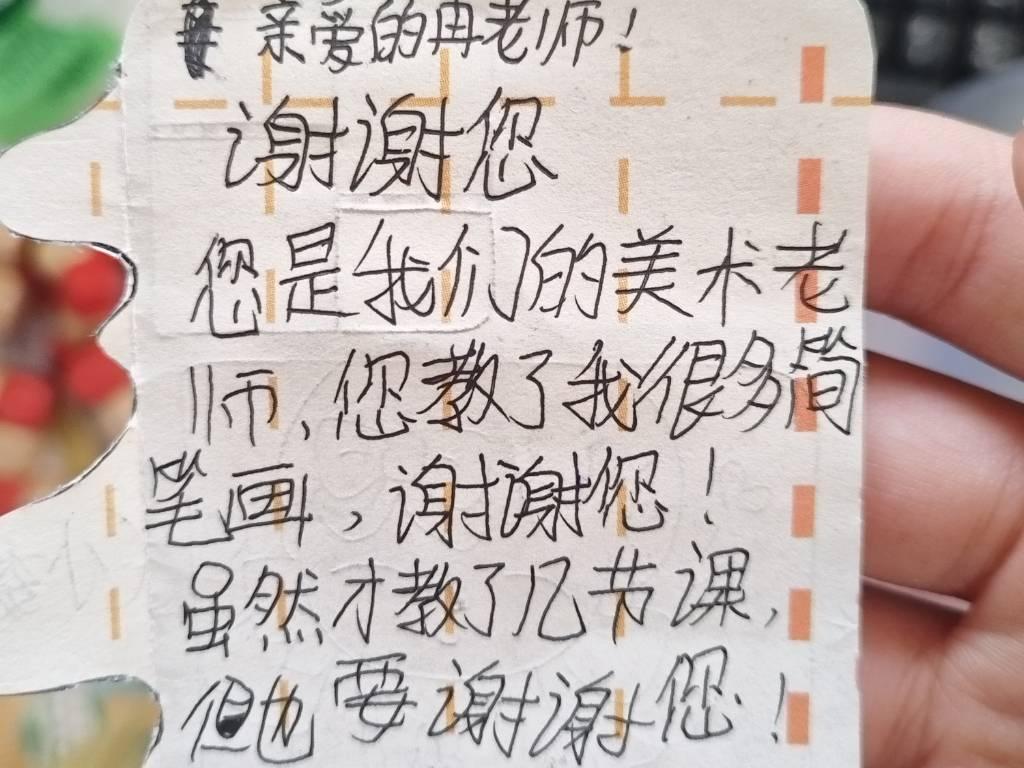 亲爱的冉老师！
谢谢您
您是我们的美术老
师、您教了我很多简
笔画，谢谢您！
虽然才教了几节课，
但也要谢谢您！